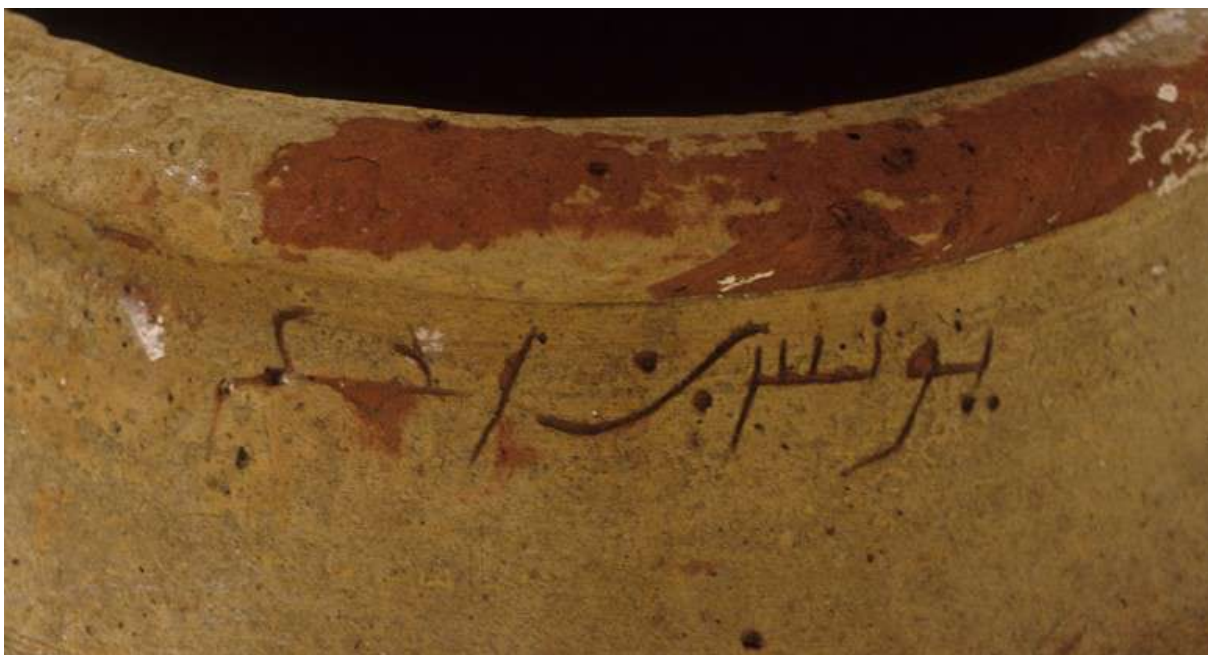 يونس بن احكم